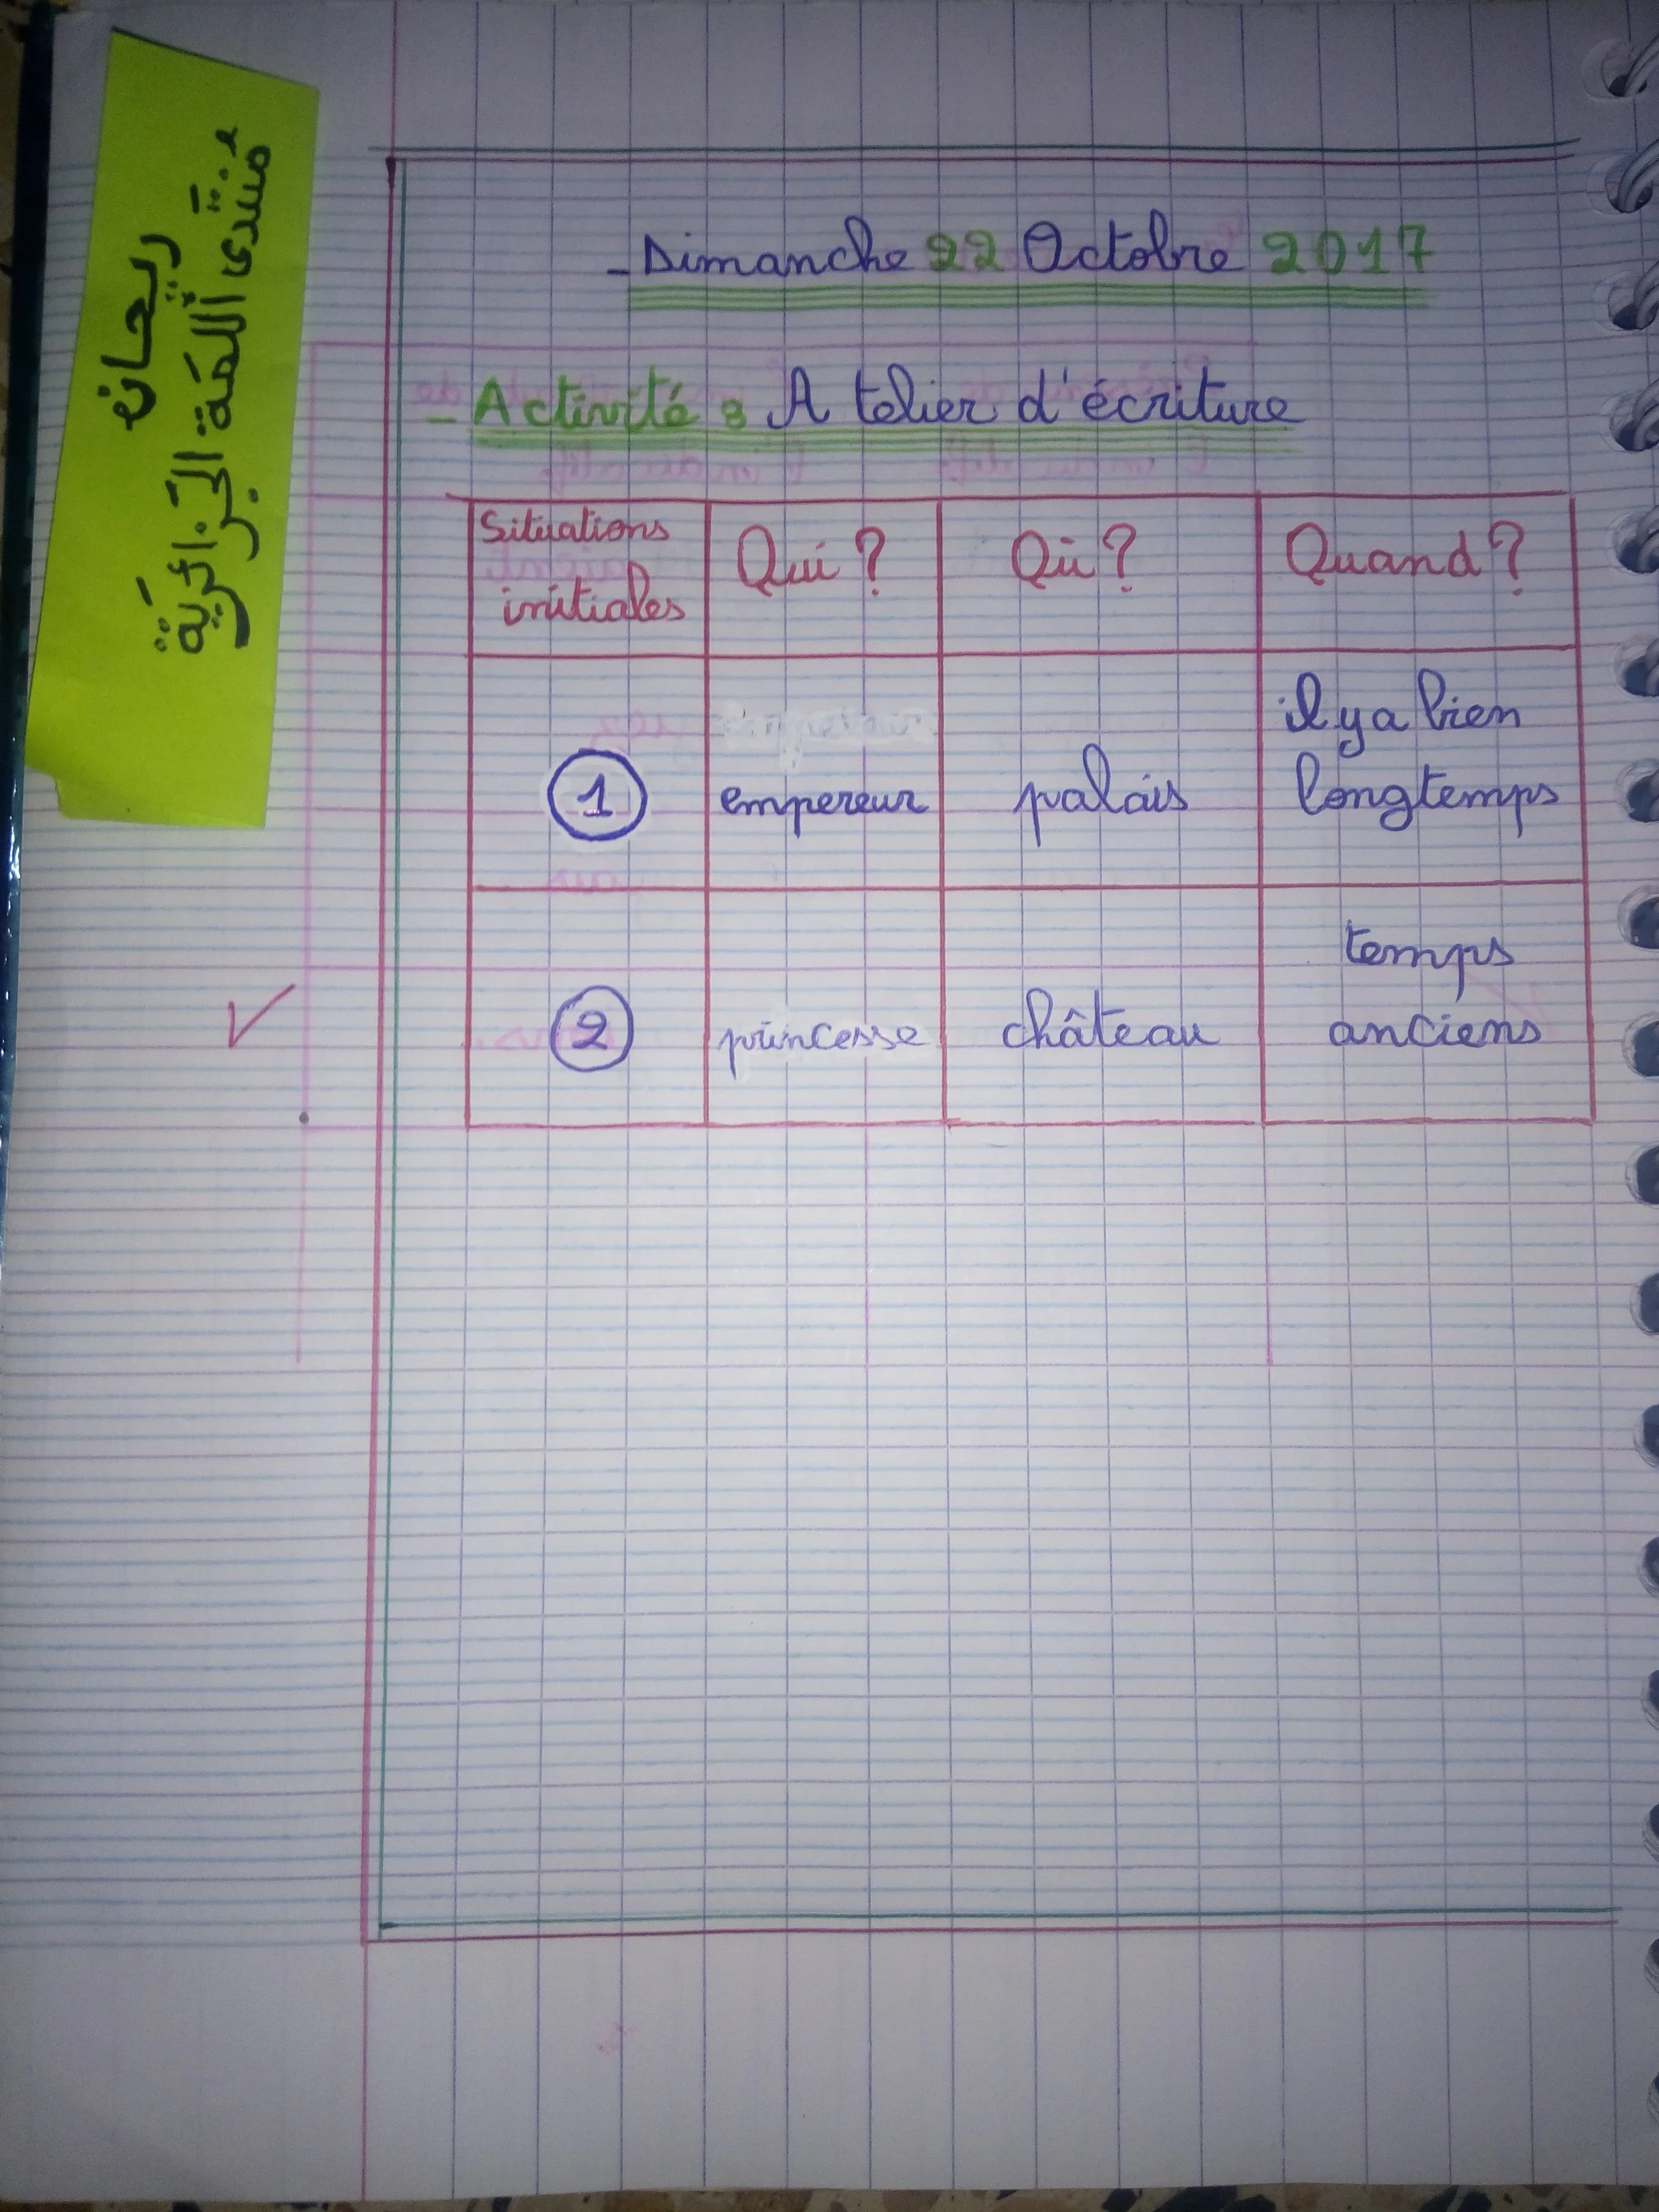 ريحان
منتدى اللمة الجزائرية
-Dimanche 22 Octobre 2017
- Activité : Atelier d'écriture
Situations initiales Qui ? Où ? Quand ?
1 empereur palais il y a bien longtemps
2 princesse château temps anciens